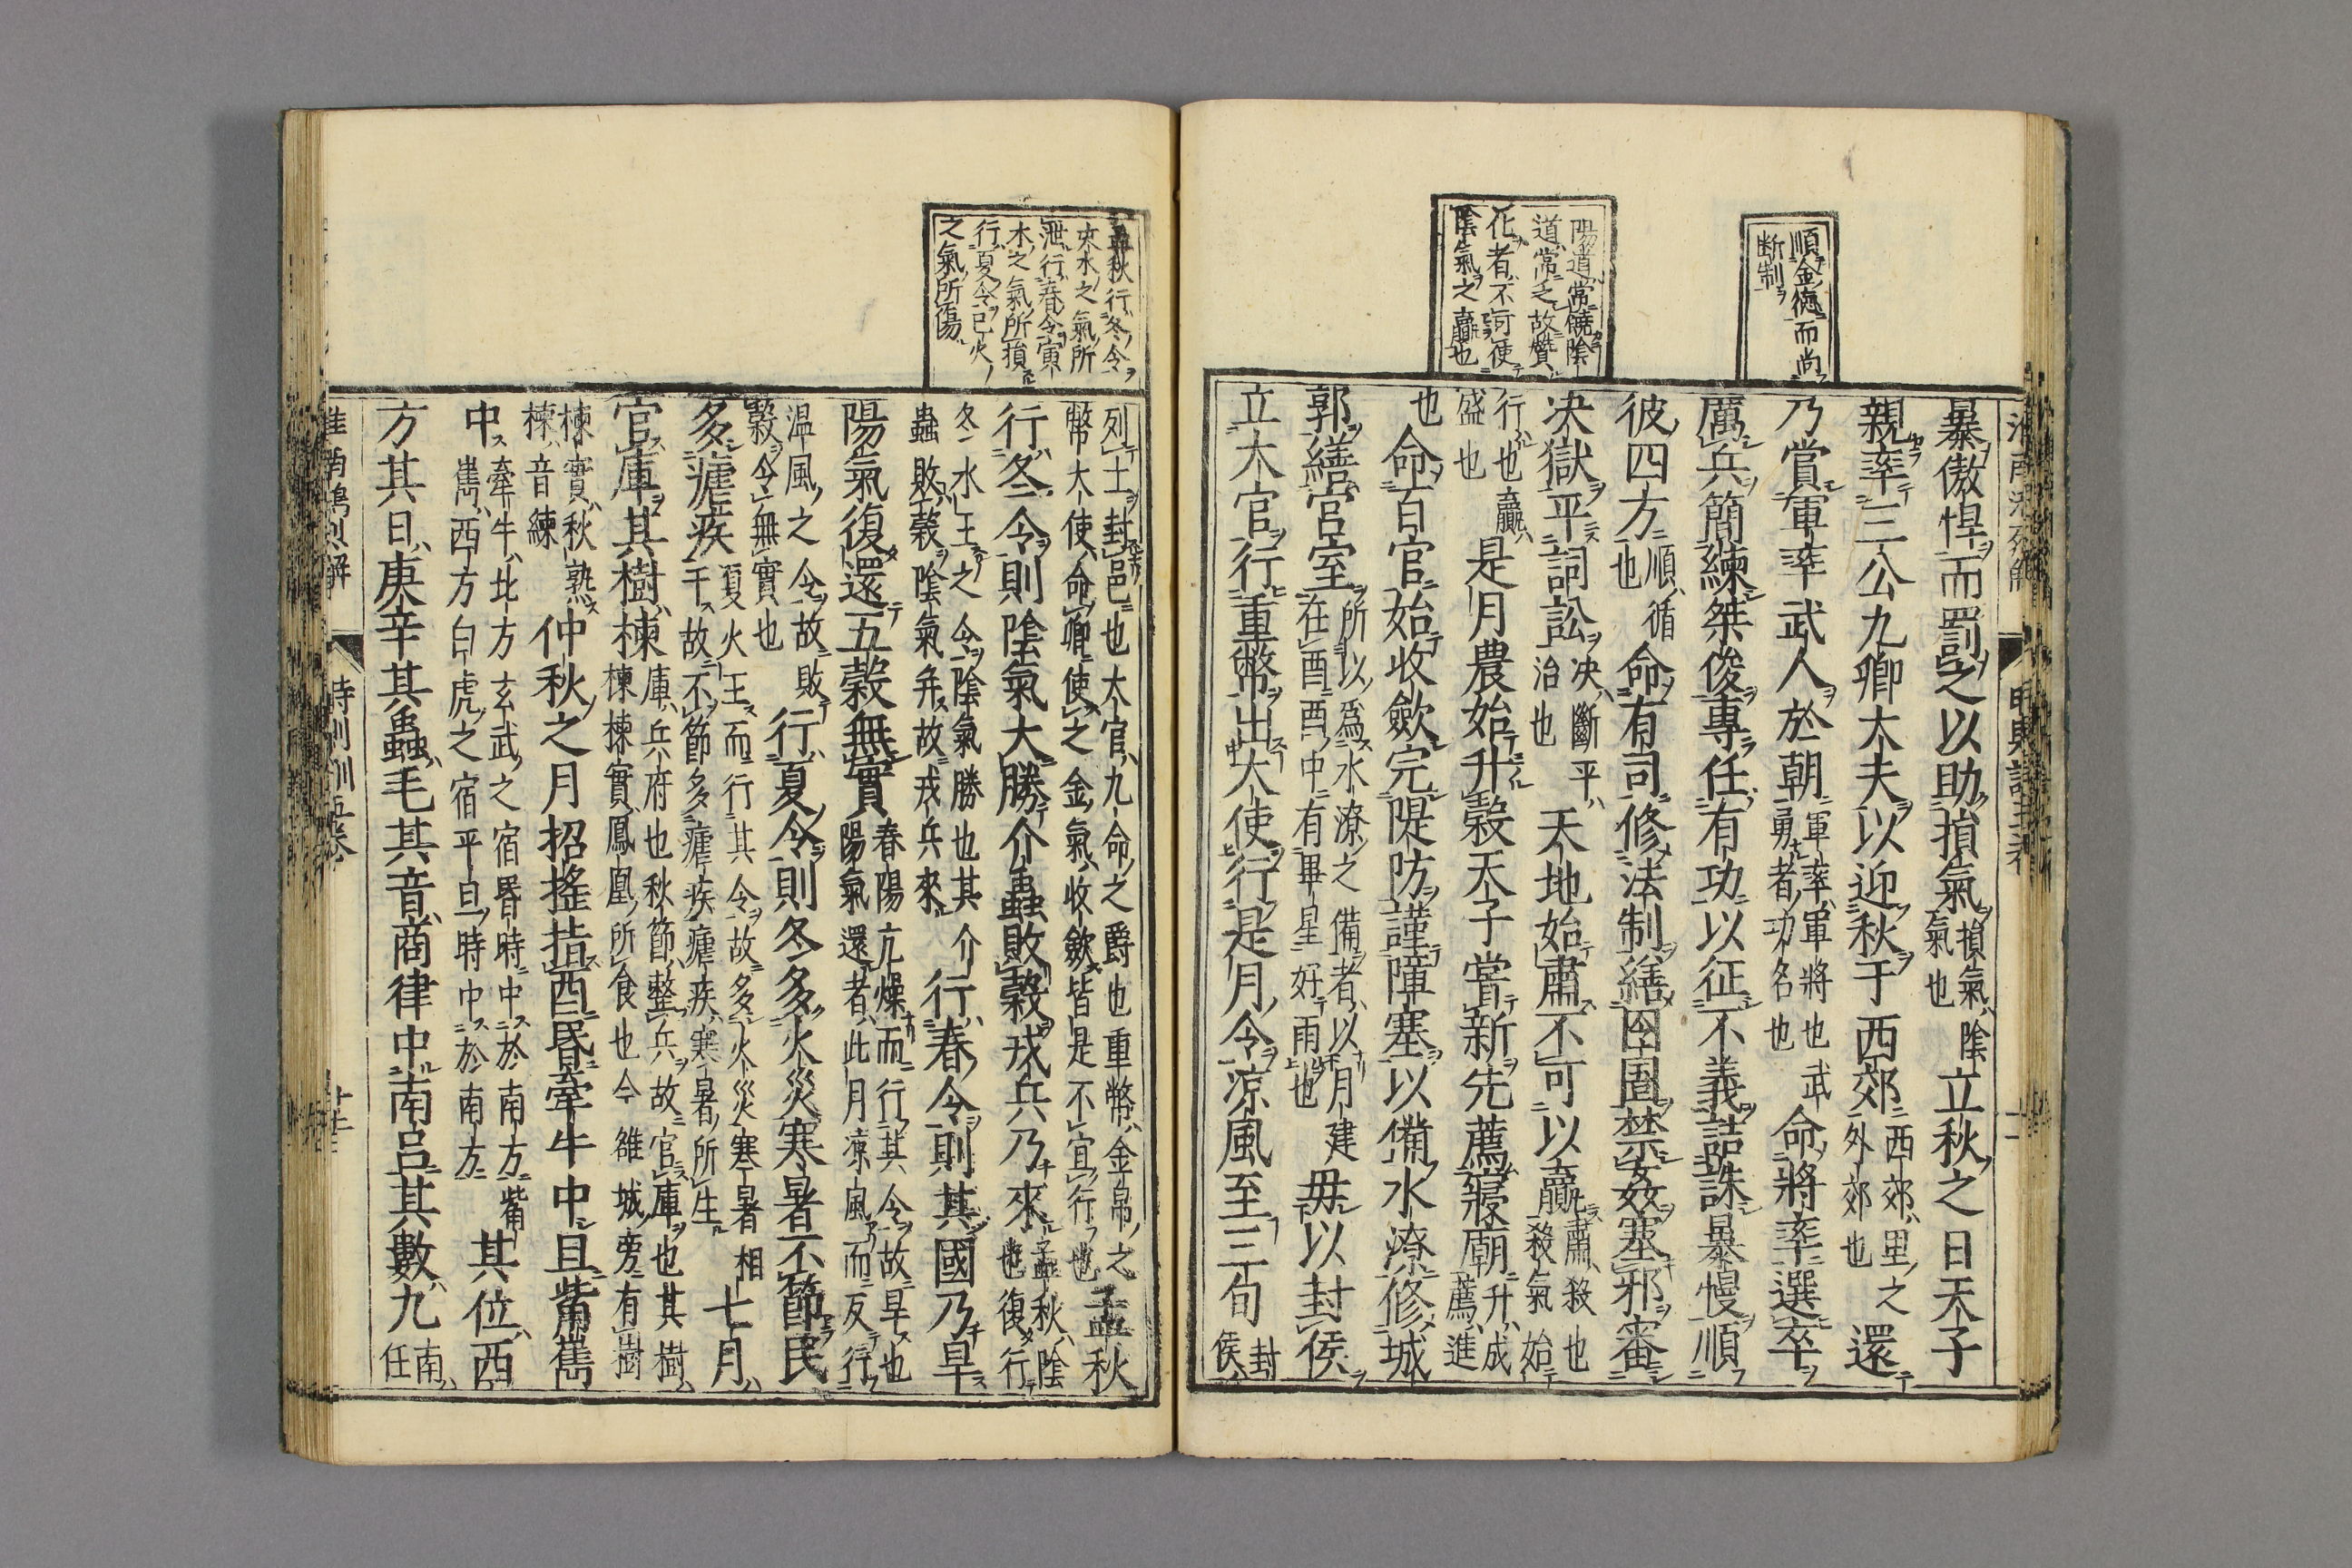 順金德而尚
断制
陽道常饒陰
道常乏故贊
化者不可使
陰氣之贏也
暴傲悍而罰之以助損氣損氣陰氣也立秋之日天子
親率三公九卿大夫以迎秋于西郊西郊九里之外郊也還
乃賞軍率武人於朝軍率軍將也武勇者功名也命將率選卒
厲兵簡練桀俊專任有功以征不義詰誅暴慢順
彼四方順循也命有司修法制繕囹圄禁姦塞邪審
决獄平詞訟决斷平治也天地始肅不可以贏肅殺也殺氣始
行也贏盛也是月農始升穀天子嘗新先薦寢廟升成薦進
也命百官始收斂完隄防謹障塞以備水潦修城
郭繕宮室所以爲水潦之備者以月建在酉酉中有畢星好雨也毋以封侯
立大官行重幣出大使行是月令涼風至三旬封侯
孟秋行冬令
來水之氣所
泄行春令寅
木之氣所損
行夏令巳火
之氣所傷
列土封邑也大官九命之爵也重幣金帛之幣大使命卿使之金氣收斂皆是不宜行也孟秋
行冬令則陰氣大勝介蟲敗穀戎兵乃來孟秋陰也復行
冬水王之令陰氣勝也其介蟲敗穀陰氣并故戎兵來行春令則其國乃旱
陽氣復還五穀無實春陽亢燥而行其令故旱也陽氣還者此月涼風而反行
温風之令故敗穀令無實也行夏令則冬多火災寒暑不節民
多瘧疾夏火王而行其令故多火災寒暑相干故不節多瘧疾瘧疾寒暑所生七月
官庫其樹楝庫兵府也秋節整兵故官庫也其樹楝楝實鳳凰所食也今雒城旁有樹
楝實秋熟楝音練仲秋之月招搖指酉昏牽牛中旦觜嶲
中牽牛北方玄武之宿昏時中於南方觜嶲西方白虎之宿平旦時中於南方其位西
方其日庚辛其蟲毛其音商律中南呂其數九南任
時則訓五卷
十二